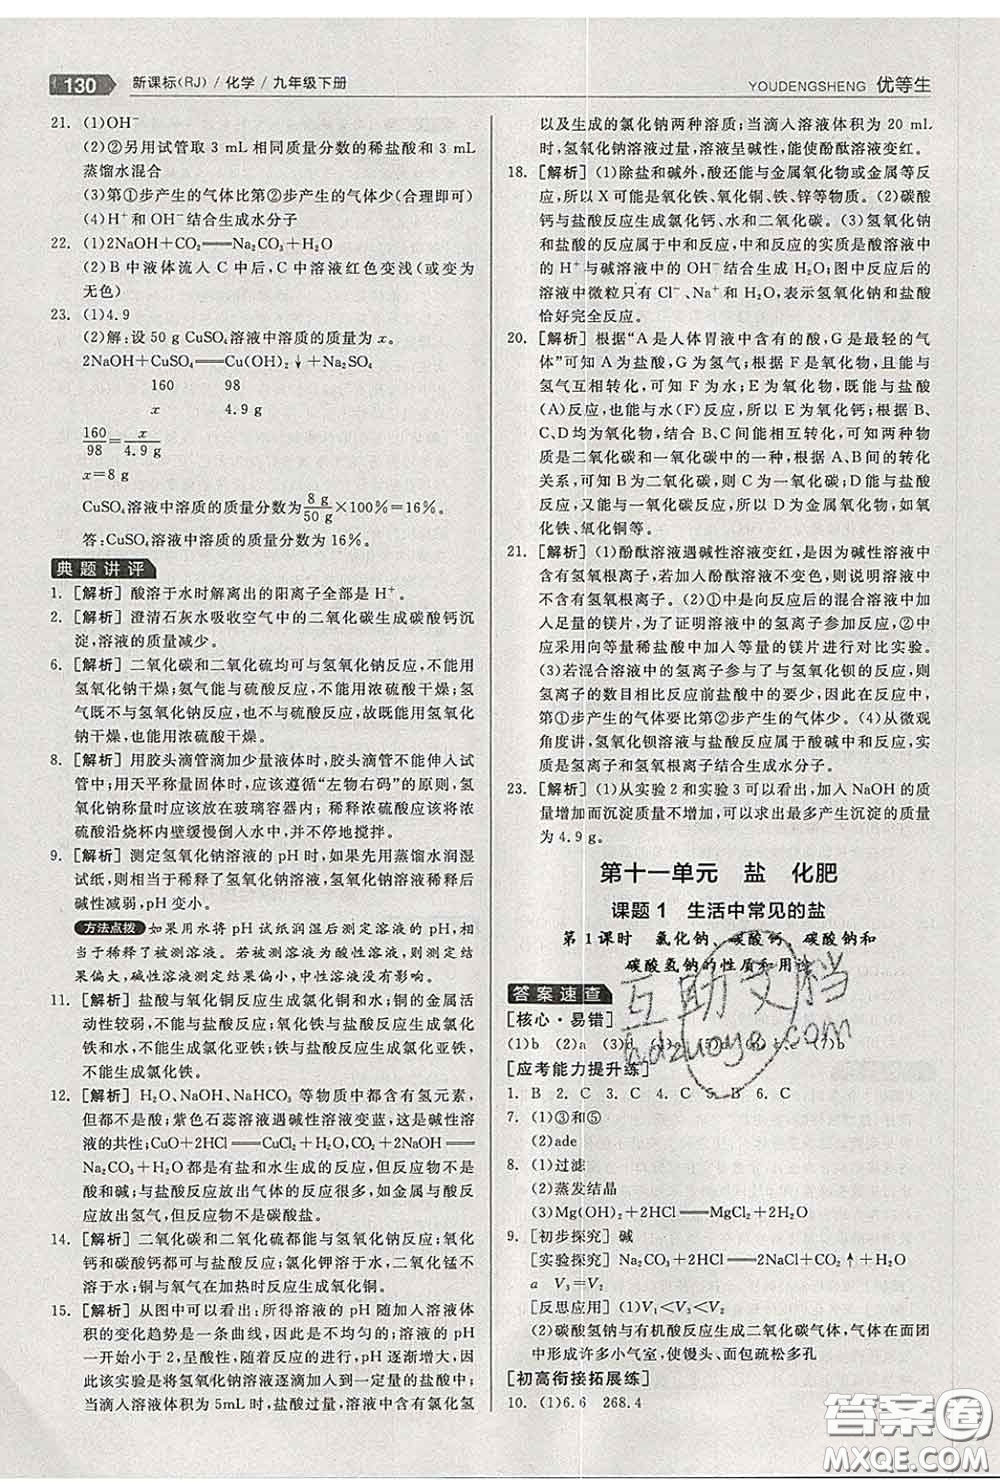 130 新课标(RJ) / 化学 / 九年级下册
YOUDENGSHENG 优等生
21. (1)OH⁻
(2)②另用试管取 3 mL 相同质量分数的稀盐酸和 3 mL
蒸馏水混合
(3)第①步产生的气体比第②步产生的气体少(合理即可)
(4)H⁺和 OH⁻结合生成水分子
22. (1)2NaOH+CO₂══Na₂CO₃+H₂O
(2)B 中液体流入 C 中后,C 中溶液红色变浅(或变为
无色)
23. (1)4.9
(2)解:设 50 g CuSO₄溶液中溶质的质量为 x。
2NaOH+CuSO₄══Cu(OH)₂↓+Na₂SO₄
160 98
x 4.9 g
160/98=x/4.9 g
x=8 g
CuSO₄溶液中溶质的质量分数为8 g/50 g×100%=16%。
答:CuSO₄溶液中溶质的质量分数为 16%。
典题讲评
1. [解析] 酸溶于水时解离出的阳离子全部是 H⁺。
2. [解析] 澄清石灰水吸收空气中的二氧化碳生成碳酸钙沉
淀,溶液的质量减少。
6. [解析] 二氧化碳和二氧化硫均可与氢氧化钠反应,不能用
氢氧化钠干燥;氨气能与硫酸反应,不能用浓硫酸干燥;氧
气既不与氢氧化钠反应,也不与硫酸反应,故既能用氢氧化
钠干燥,也能用浓硫酸干燥。
8. [解析] 用胶头滴管滴加少量液体时,胶头滴管不能伸入试
管中;用天平称量固体时,应该遵循“左物右码”的原则,氢
氧化钠称量时应该放在玻璃容器内; 稀释浓硫酸时应该将浓
硫酸沿烧杯内壁缓慢倒入水中,并不停地搅拌。
9. [解析] 测定氢氧化钠溶液的 pH 时,如果先用蒸馏水润湿
试纸,则相当于稀释了氢氧化钠溶液,氢氧化钠溶液稀释后
碱性减弱,pH 变小。
方法点拨 如果用水将 pH 试纸润湿后测定溶液的 pH,则
相当于稀释了被测溶液。若被测溶液显酸性,则测定结果
偏大,碱性溶液测定结果偏小,中性溶液测定结果没有影响。
11. [解析] 盐酸与氧化铜反应生成氯化铜和水;铜的金属活
动性较弱,不能与盐酸反应,不能生成氯化铜;铁与盐酸反
应生成氯化亚铁,不能生成氯化铁;氧化铁与盐酸反应生
成氯化铁和水,不能生成氯化亚铁;铁与盐酸反应生成氯化亚铁,
不能生成氯化铁。
12. [解析] H₂O、NaOH、NaHCO₃等物质中都含有氢元素,
但都不是酸;紫色石蕊溶液遇碱性溶液变蓝,这是碱性溶
液的共性;CuO+2HCl══CuCl₂+H₂O,CO₂+2NaOH══
Na₂CO₃+H₂O 都是有盐和水生成的反应,但反应物不是
酸和碱;与盐酸反应放出气体的反应很多,如金属与酸反
应放出氢气,但反应物不是碳酸盐。
14. [解析] 二氧化碳和二氧化硫都能与氢氧化钠反应;氧化
钙和碳酸钙都可与盐酸反应;氯化钾溶于水,而碳酸钙不
溶于水;铜与氧气在加热时反应生成氧化铜。
15. [解析] 从图中可以看出:所得溶液的 pH 随加入溶液体
积的变化趋势是一条曲线,因此是不均匀的;溶液的 pH
一开始小于 2,呈酸性,随着反应的进行 pH 逐渐增大,因
此该实验是将氢氧化钠溶液逐滴加入到稀盐酸中;
当滴入溶液的体积为5mL 时,溶液显酸性,含有氯化氢
以及生成的氯化钠两种溶质;当滴入溶液体积为 20 mL
时,氢氧化钠溶液过量,溶液呈碱性,能使酚酞溶液变红。
18. [解析] (1)除盐和碱外,酸还能与金属氧化物或金属等反
应,所以 X 可能是氧化铁、氧化铜、铁、锌等物质。(2)碳酸
钙与盐酸反应生成氯化钙、水和二氧化碳。(3)氢氧化钠
和盐酸的反应属于中和反应,中和反应的实质是酸溶液中
的 H⁺与碱溶液中的 OH⁻结合生成水;图中反应后的
溶液中微粒只有 Cl⁻、Na⁺和 H₂O,表示氢氧化钠和盐酸
恰好完全反应。
20. [解析] 根据“A 是人体胃液中含有的酸,G 是最轻的气
体”可知 A 为盐酸,G 为氢气;根据 F 是氧化物,且能与
氢气互相转化,可知 F 为水;E 为氧化物,既能与盐酸
(A)反应,也能与水(F)反应,所以 E 为氧化钙;根据 B、
C、D 均为氧化物,结合 B、C 间能相互转化,可知两种物
质是二氧化碳和一氧化碳中的一种,根据 A、B 间的转化
关系,可知 B 为二氧化碳,则 C 为一氧化碳;D 能与盐酸
反应,又能与一氧化碳反应,所以 D 为金属氧化物,如氧
化铁、氧化铜等。
21. [解析] (1)酚酞溶液遇碱性溶液变红,是因为碱性溶液中
含有氢氧根离子,加入酚酞溶液不变色,则说明溶液中没
有氢氧根离子。(2)①中是向反应后的混合溶液中加
入足量的镁片,为了证明溶液中氢离子数目变少,②中
应采用向等量稀盐酸中加入等量的镁片进行对比实验。
(3)若混合溶液中的氢离子参与了与氢氧化钡的反应,则
氢离子的数目相比反应前盐酸中的要少,因此在反应中,
第①步产生的气体要比第②步产生的气体少。(4)从微观
角度讲,氢氧化钡溶液与盐酸反应属于酸碱中和反应,实
质是氢离子和氢氧根离子结合生成水分子。
23. [解析] (1)从实验 2 和实验 3 可以看出,加入 NaOH 的质
量增加而沉淀质量不增加,可以求出最多产生沉淀的质量
为 4.9 g。
第十一单元 盐 化肥
课题 1 生活中常见的盐
第 1 课时 氯化钠、碳酸钙、碳酸钠和
碳酸氢钠的性质和用途
答案速查
[核心·易错]
(1)b (2)a (3)d (7)b
[应考能力提升练]
1. B 2. C 3. C 4. C 5. B 6. C
7. (1)③和⑤
(2)ade
8. (1)过滤
(2)蒸发结晶
(3)Mg(OH)₂+2HCl══MgCl₂+2H₂O
9. [初步探究] 碱
[实验探究] Na₂CO₃+2HCl══2NaCl+CO₂↑+H₂O
a V₃=V₂
[反思应用] (1)V₁<V₃<V₂
(2)碳酸氢钠与有机酸反应生成二氧化碳气体,气体在面团
中形成许多小气室,使馒头、面包疏松多孔
[初高衔接拓展练]
10. (1)6.6 268.4
互助文档
hdzuoye.com
答案圈
MXQE.COM